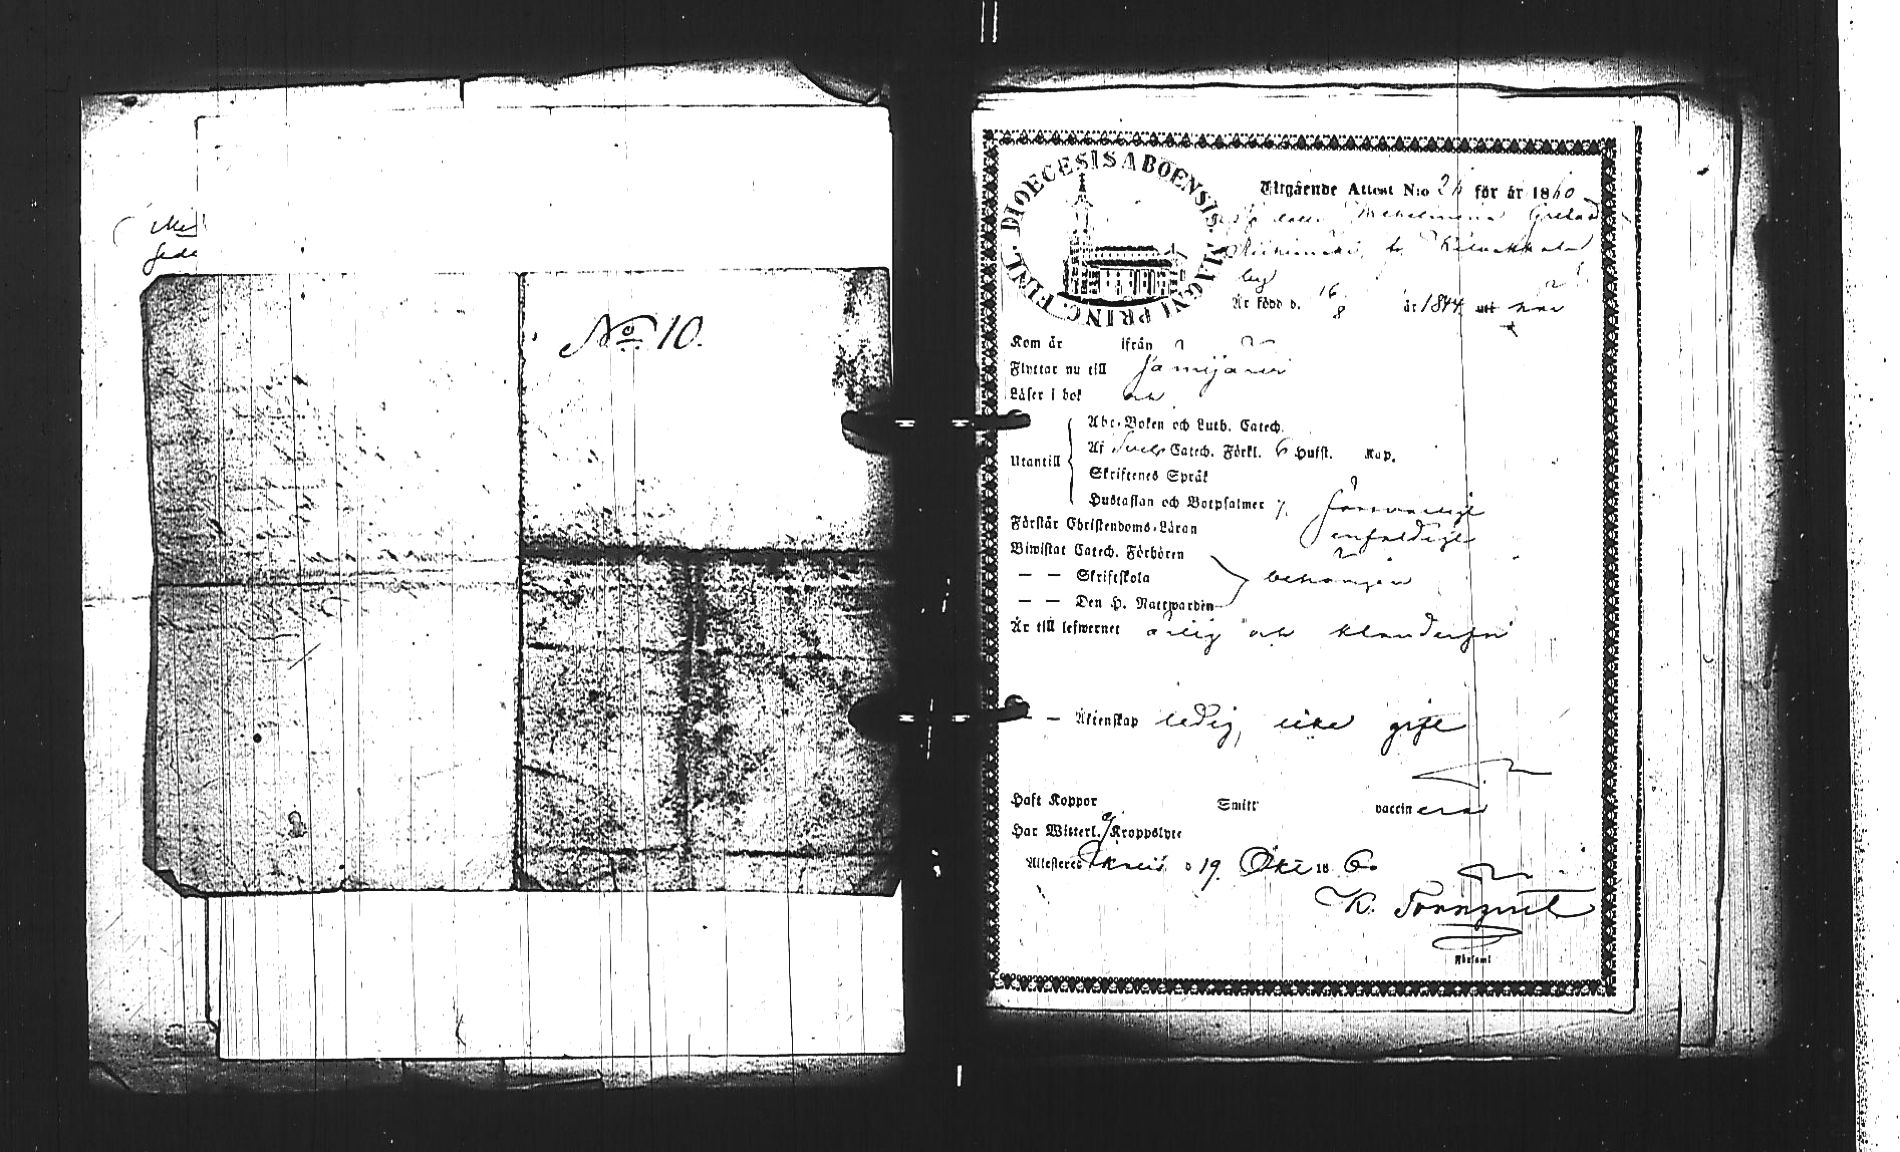 No 10.
DIOECESIS ABOENSIS. MAGNI PRINC. FINL.
Utgående Attest N:o 26 för år 1860
Wilhelmina Greta
by
Är född d. 16/8 år 1844
Kom år ifrån
Flyttar nu till Jämijärvi
Läser i bok
Utantill
Abc-Boken och Luth. Catech.
Af Sveb. Catech. Förkl. 6 Hufst. Kap.
Skriftenes Språk
Hustaflan och Botpsalmer 7. försvarligt
Förstår Christendoms-Läran enfaldigt
Biwistat Catech. Förhören
— — Skriftskola behörigen
— — Den H. Nattwarden
Är till lefwernet ärlig och klanderfri
— — Äktenskap ledig, icke gift
Haft Koppor Smitt vaccinerad
Har Witterl. ej Kroppslyte
Attesteras d 19 Okt 1860
K. Törnqvist